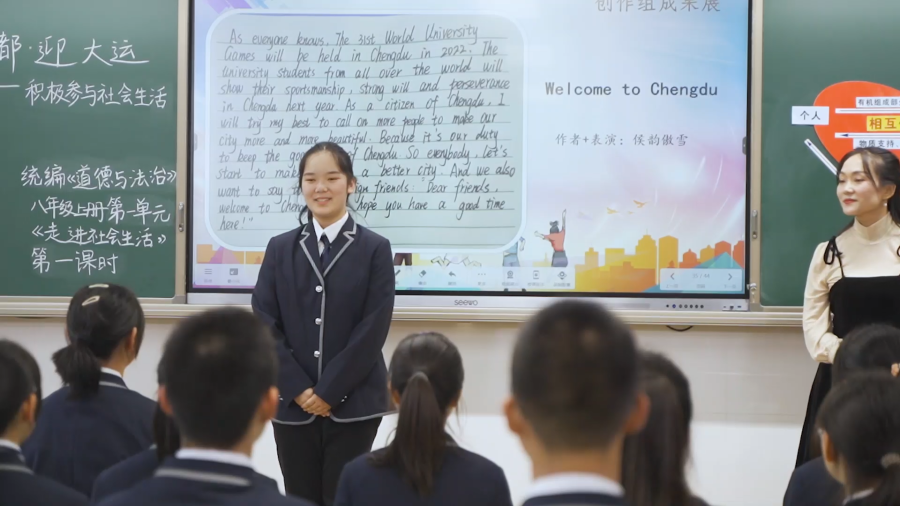 都·迎大运
积极参与社会生活
统编《道德与法治》
八年级上册第一单元
《走进社会生活》
第一课时
创作组成果展
As everyone knows, The 31st World University
Games will be held in Chengdu in 2022. The
university students from all over the world will
show their sportsmanship, strong will and perseverance
in Chengdu next year. As a citizen of Chengdu, I
will try my best to call on more people to make our
city more and more beautiful. Because it's our duty
to keep the of Chengdu. So everybody, let's
start to a better city. And we also
want to say friends. Dear friends,
welcome to hope you have a good time
here!"
Welcome to Chengdu
作者+表演：侯韵傲雪
seewo
个人
有机组成部
相互
物质支持